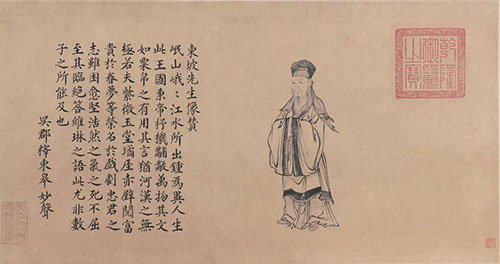 東坡先生像贊
岷山峨〻江水所出鍾為異人生
此王國秉帝杼機黼黻萬物其文
如粟帛之有用其言猶河漢之無
極若夫紫微玉堂瓊崖赤壁閱富
貴於春夢等榮名於戲劇忠君之
志雖困愈堅浩然之氣之死不屈
至其臨絕答維琳之語此尤非數
子之所能及也
吳郡釋東皋妙聲